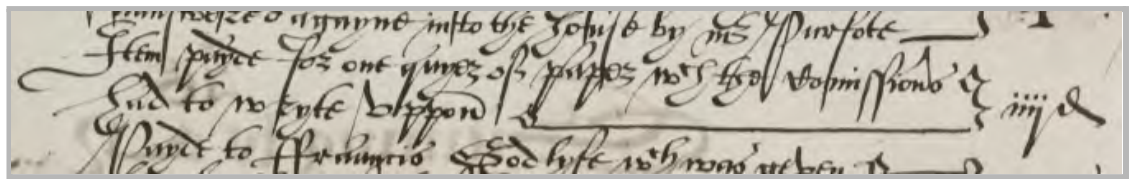 agayne into the house by mr Purfote
Item payde for one quyer of paper wch the Comissions
had to wryte uppon iiij d
Payde to ffrauncis Godlyfe wch was geven